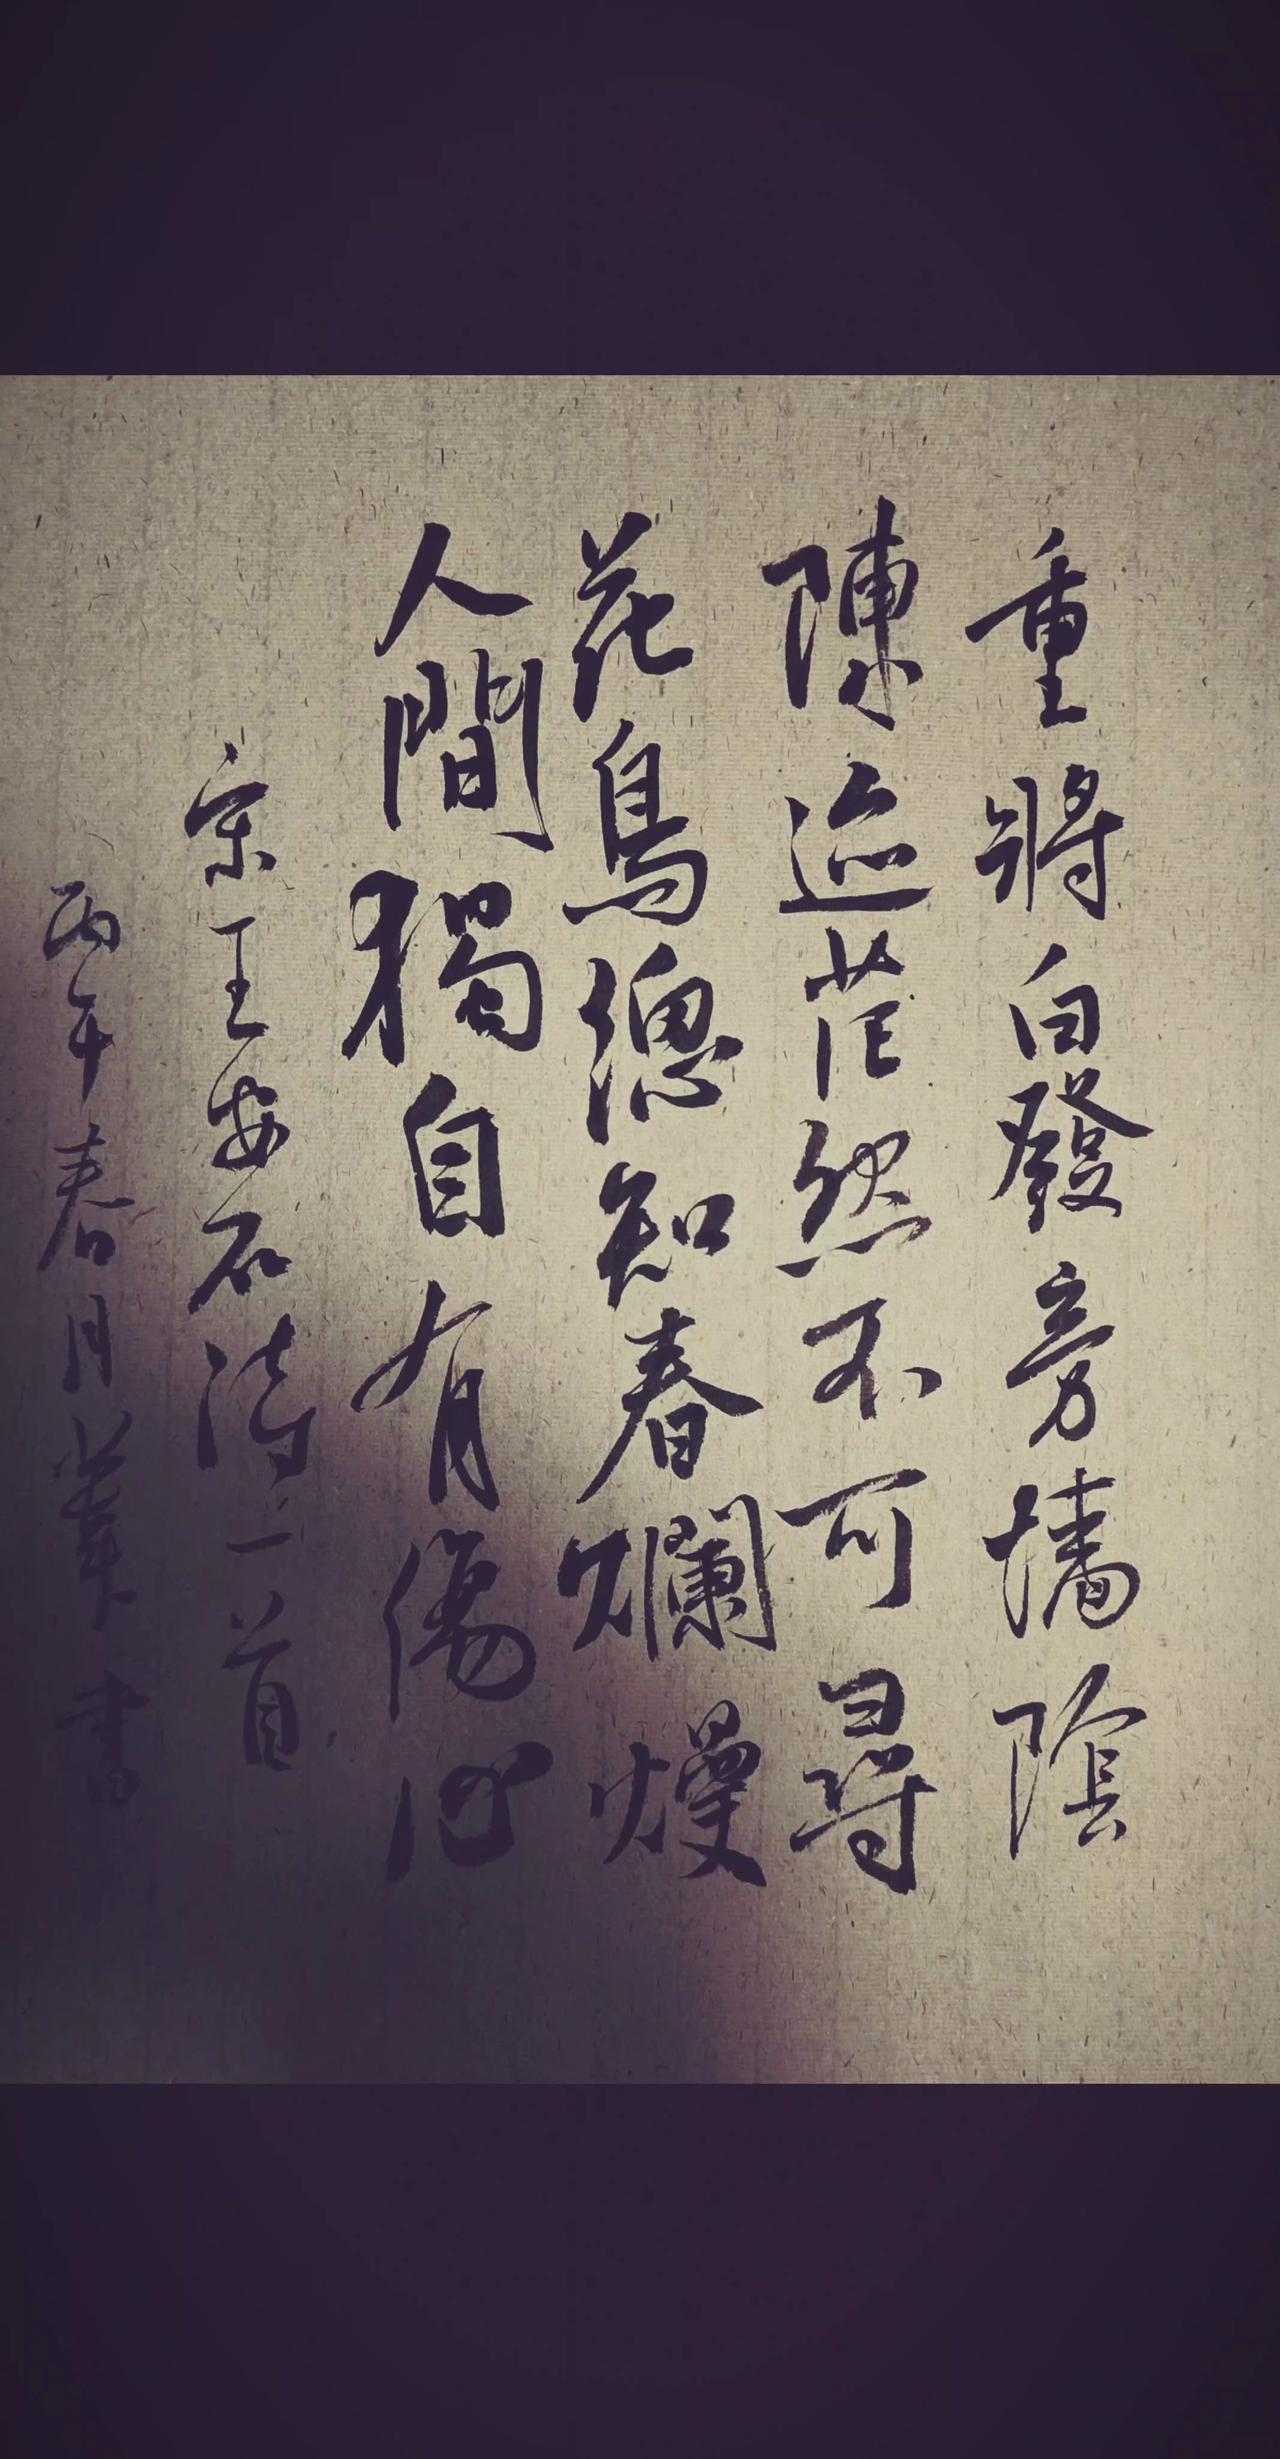 重將白發旁墻陰
陳迹茫然不可尋
花鳥總知春爛熳
人間獨自有傷心
宋王安石詩一首
丙午春月 書